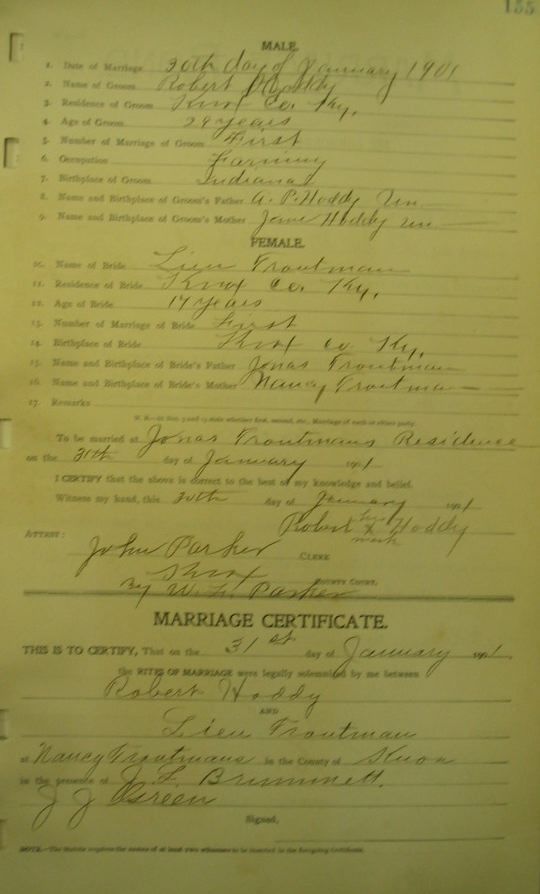 155
MALE.
1. Date of Marriage 30th day of January 1901
2. Name of Groom Robert Hoddy
3. Residence of Groom Knox Co. Ky.
4. Age of Groom 29 years
5. Number of Marriage of Groom First
6. Occupation Farming
7. Birthplace of Groom Indiana
8. Name and Birthplace of Groom's Father A. P. Hoddy Un
9. Name and Birthplace of Groom's Mother Jane Hoddy un
FEMALE.
10. Name of Bride Lieu Troutman
11. Residence of Bride Knox Co. Ky.
12. Age of Bride years
13. Number of Marriage of Bride First
14. Birthplace of Bride Knox Co Ky.
15. Name and Birthplace of Bride's Father Jonas Troutman
16. Name and Birthplace of Bride's Mother Nancy Troutman
17. Remarks
N. B.—At Nos. 5 and 13 state whether first, second, etc., Marriage of each or either party.
To be married at Jonas Troutmans Residence
on the 31th day of January 1901
I CERTIFY that the above is correct to the best of my knowledge and belief.
Witness my hand, this 30th day of January 1901
Robert his X mark Hoddy
ATTEST:
John Parker CLERK
Knox COUNTY COURT,
By W. L. Parker
MARRIAGE CERTIFICATE.
THIS IS TO CERTIFY, That on the 31st day of January 1901
the RITES OF MARRIAGE were legally solemnized by me between
Robert Hoddy
AND
Lieu Troutman
at Nancy Troutmans in the County of Knox
in the presence of J. L. Brummett.
J J Green
Signed,
NOTE.—The Statute requires the names of at least two witnesses to be inserted in the foregoing Certificate.